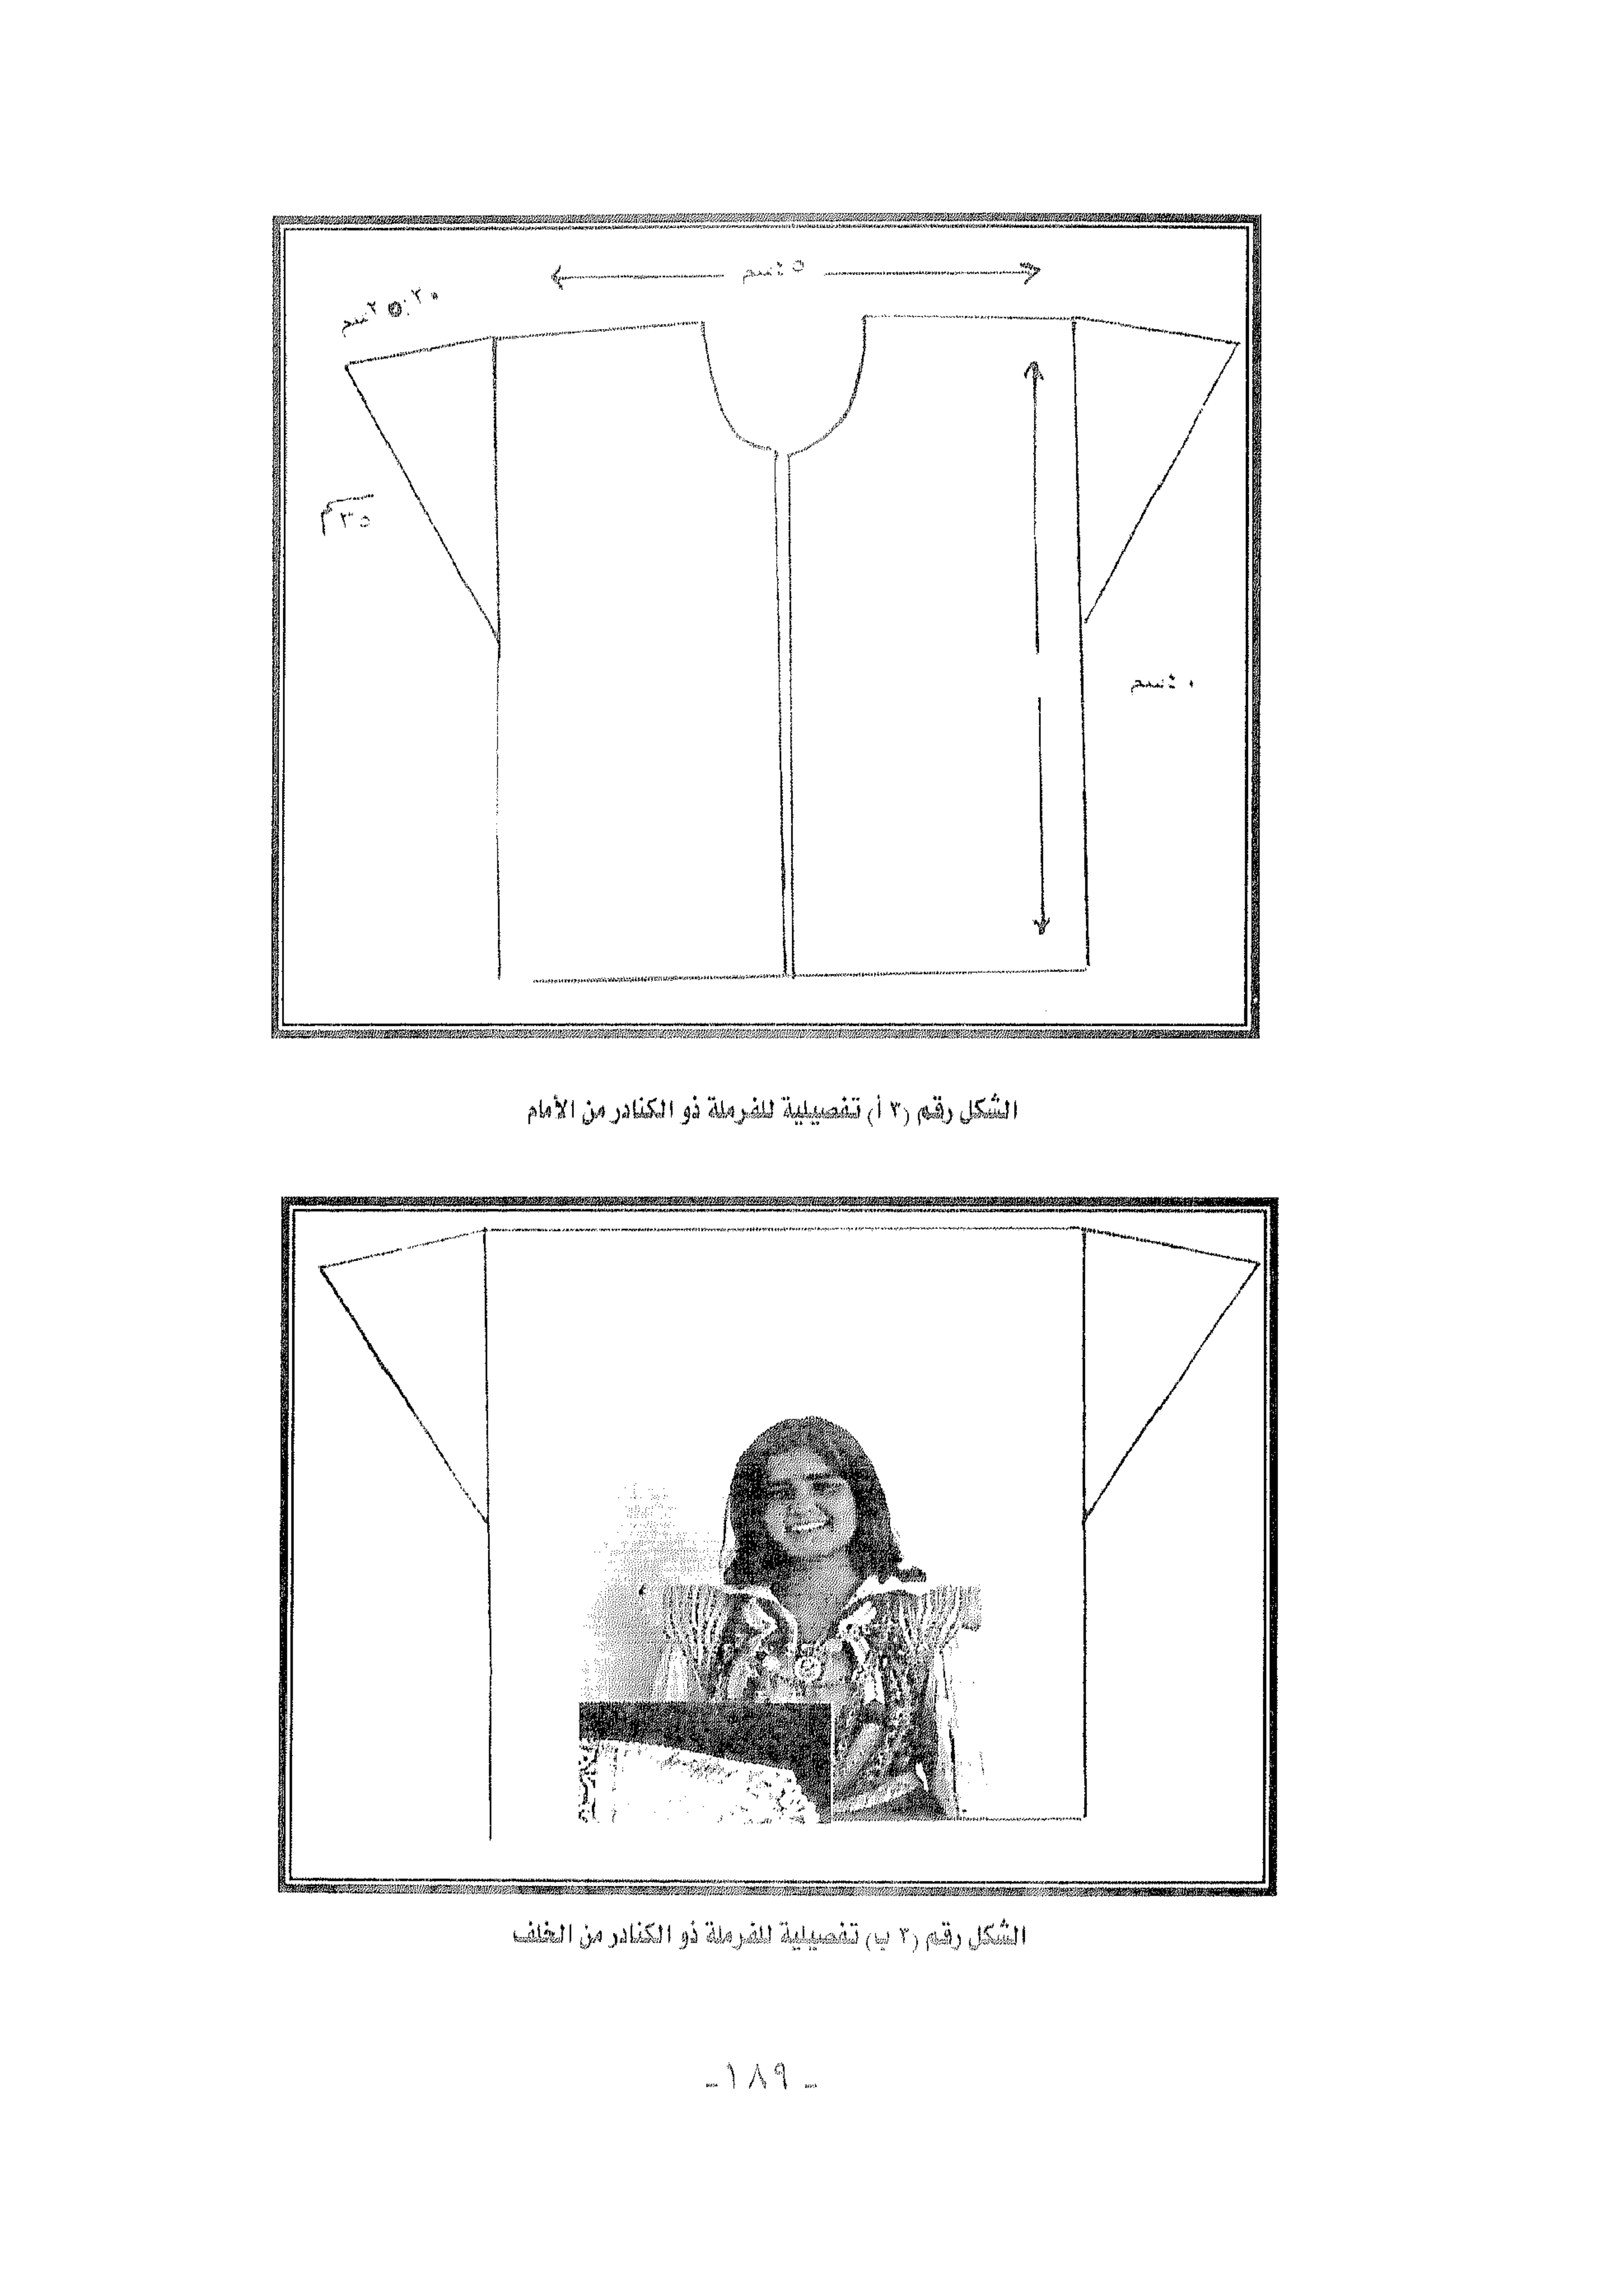 ٤٥سم
٣٥سم
٤٠سم
الشكل رقم (٣ أ) تفصيلية للفرملة ذو الكنادر من الأمام
الشكل رقم (٣ ب) تفصيلية للفرملة ذو الكنادر من الخلف
ـ ١٨٩ـ